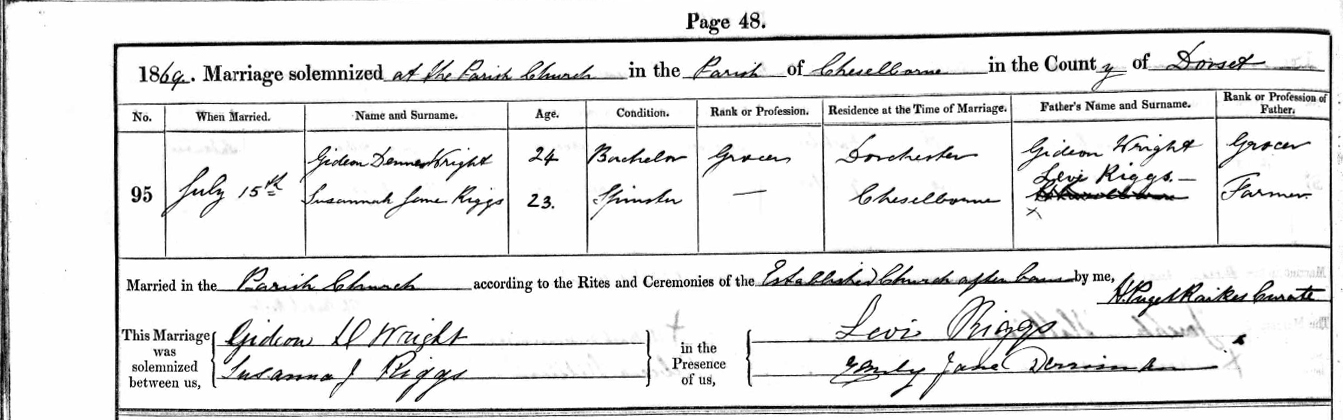 Page 48.
1869. Marriage solemnized at the Parish Church in the Parish of Cheselborne in the County of Dorset
No. When Married. Name and Surname. Age. Condition. Rank or Profession. Residence at the Time of Marriage. Father's Name and Surname. Rank or Profession of Father.
Gideon Wright 24 Bachelor Grocer Dorchester Gideon Wright Grocer
95 July 15th Susannah Jane Riggs 23. Spinster — Cheselborne Levi Riggs — Farmer
Married in the Parish Church according to the Rites and Ceremonies of the Established Church after Banns by me,
H. Puget Raikes Curate
This Marriage was solemnized between us, Gideon D Wright
Susanna J Riggs
in the Presence of us, Levi Riggs
Emily Jane